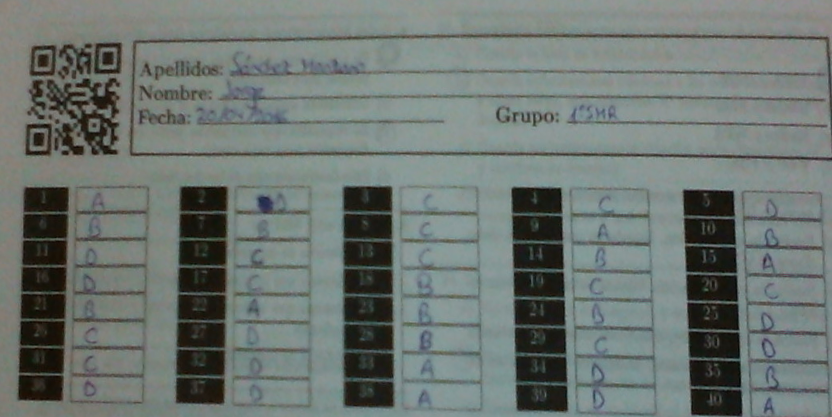 Apellidos: Sánchez
Nombre: Jorge
Fecha: 20/04/2016 Grupo: 1ºSMR
1 A 2 D 3 C 4 C 5 D
6 B 7 B 8 C 9 A 10 B
11 D 12 C 13 C 14 B 15 A
16 D 17 C 18 B 19 C 20 C
21 B 22 A 23 B 24 B 25 D
26 C 27 D 28 B 29 C 30 D
31 C 32 D 33 A 34 D 35 B
36 D 37 D 38 A 39 D 40 A